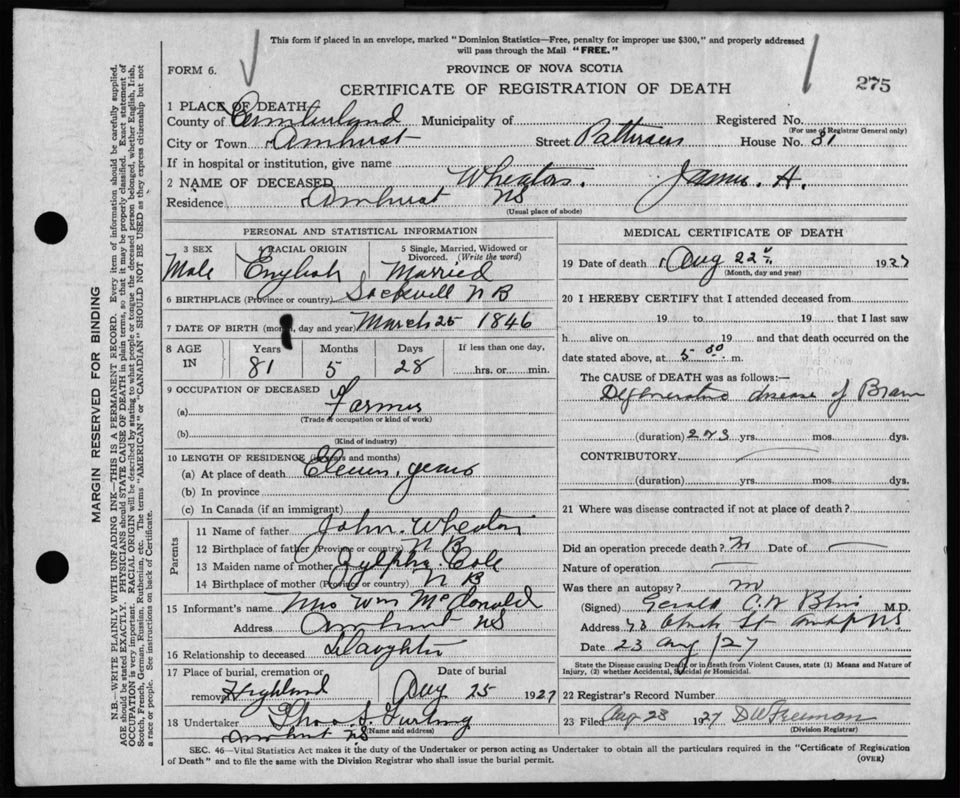 This form if placed in an envelope, marked "Dominion Statistics—Free, penalty for improper use $300," and properly addressed
will pass through the Mail "FREE."
FORM 6.
PROVINCE OF NOVA SCOTIA
CERTIFICATE OF REGISTRATION OF DEATH
275
1 PLACE OF DEATH
County of Cumberland Municipality of Registered No.
(For use of Registrar General only)
City or Town Amherst Street Patterson House No. 31
If in hospital or institution, give name
2 NAME OF DECEASED Wheaton. James. A.
Residence Amherst NS
(Usual place of abode)
PERSONAL AND STATISTICAL INFORMATION
3 SEX 4 RACIAL ORIGIN 5 Single, Married, Widowed or
Divorced. (Write the word)
Male English Married
6 BIRTHPLACE (Province or country) Sackvill N B
7 DATE OF BIRTH (month, day and year) March 25 1846
8 AGE Years Months Days If less than one day,
IN 81 5 28 hrs. or min.
9 OCCUPATION OF DECEASED
(a) Farmer
(Trade or occupation or kind of work)
(b)
(Kind of industry)
10 LENGTH OF RESIDENCE (in years and months)
(a) At place of death Eleven years
(b) In province
(c) In Canada (if an immigrant)
Parents
11 Name of father John Wheaton
12 Birthplace of father (Province or country) N B
13 Maiden name of mother Zylpha Cole
14 Birthplace of mother (Province or country) N B
15 Informant's name Mrs Wm McDonald
Address Amherst NS
16 Relationship to deceased Daughter
17 Place of burial, cremation or Date of burial
removal Highland Aug 25 1927
18 Undertaker Thos. S. Furlong
(Name and address)
Amherst NS
MEDICAL CERTIFICATE OF DEATH
19 Date of death Aug 22 1927
(Month, day and year)
20 I HEREBY CERTIFY that I attended deceased from
19 to 19 that I last saw
h alive on 19 and that death occurred on the
date stated above, at 5 00 m.
The CAUSE OF DEATH was as follows:—
Degenerative disease of Brain
(duration) 2 yrs. mos. dys.
CONTRIBUTORY
(duration) yrs. mos. dys.
21 Where was disease contracted if not at place of death?
Did an operation precede death? Date of
Nature of operation
Was there an autopsy?
(Signed) Gerald M.D.
Address St NS
Date 23 Aug /27
State the Disease causing Death, or in death from Violent Causes, state (1) Means and Nature of
Injury, (2) whether Accidental, Suicidal or Homicidal.
22 Registrar's Record Number
23 Filed Aug 23 1927 DW Freeman
(Division Registrar)
SEC. 46—Vital Statistics Act makes it the duty of the Undertaker or person acting as Undertaker to obtain all the particulars required in the "Certificate of Registration
of Death" and to file the same with the Division Registrar who shall issue the burial permit.
(OVER)
MARGIN RESERVED FOR BINDING
N.B.—WRITE PLAINLY WITH UNFADING INK—THIS IS A PERMANENT RECORD. Every item of information should be carefully supplied.
AGE should be stated EXACTLY. PHYSICIANS should STATE CAUSE OF DEATH in plain terms, so that it may be properly classified. Exact statement of
OCCUPATION is very important. RACIAL ORIGIN will be described by stating to what people or tongue the deceased person belonged, whether English, Irish,
Scotch, French, German, Russian, Ruthenian, etc. The terms "AMERICAN" or "CANADIAN" SHOULD NOT BE USED as they express citizenship but not
a race or people. See instructions on back of Certificate.